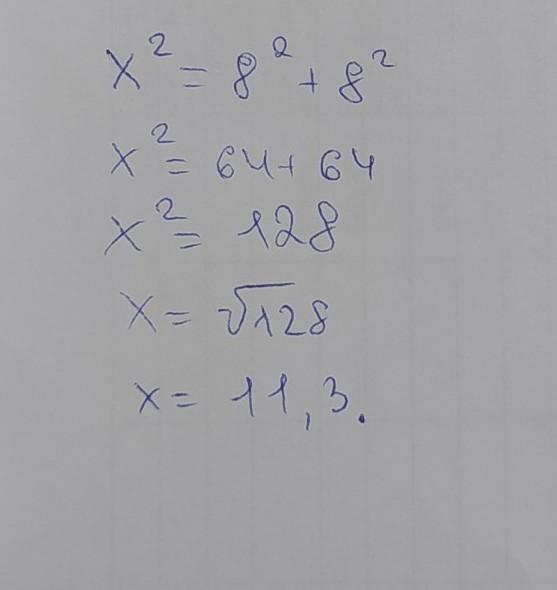 x² = 8² + 8²
x² = 64 + 64
x² = 128
x = √128
x = 11,3.